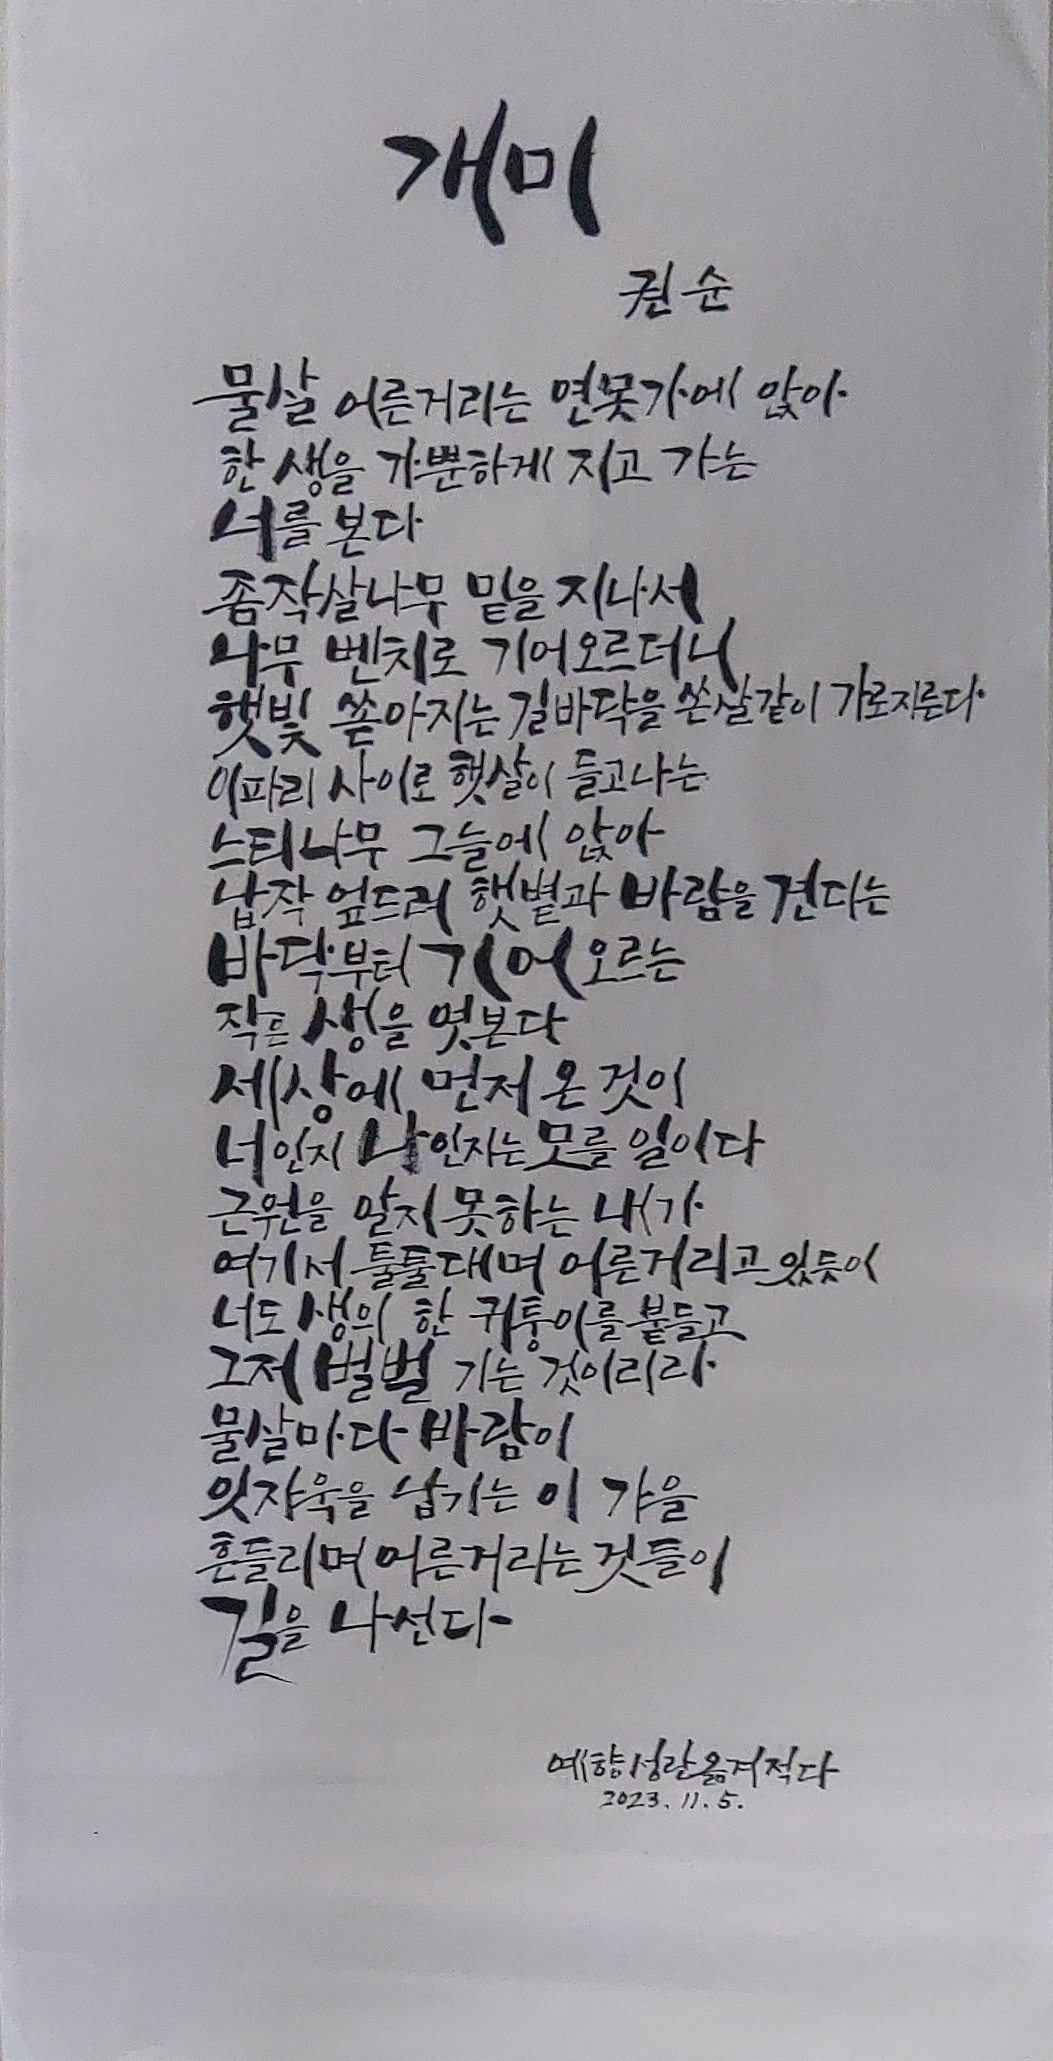 개미
권순
물살 어른거리는 연못가에 앉아
한 생을 가뿐하게 지고 가는
너를 본다
좀작살나무 밑을 지나서
나무 벤치로 기어오르더니
햇빛 쏟아지는 길바닥을 쏜살같이 가로지른다
이파리 사이로 햇살이 들고나는
느티나무 그늘에 앉아
납작 엎드려 햇볕과 바람을 견디는
바닥부터 기어오르는
작은 생을 엿본다
세상에 먼저 온 것이
너인지 나인지는 모를 일이다
근원을 알지 못하는 내가
여기서 툴툴대며 어른거리고 있듯이
너도 생의 한 귀퉁이를 붙들고
그저 벌벌 기는 것이리라
물살마다 바람이
잇자욱을 남기는 이 가을
흔들리며 어른거리는 것들이
길을 나선다
예향 성란 옮겨적다
2023. 11. 5.